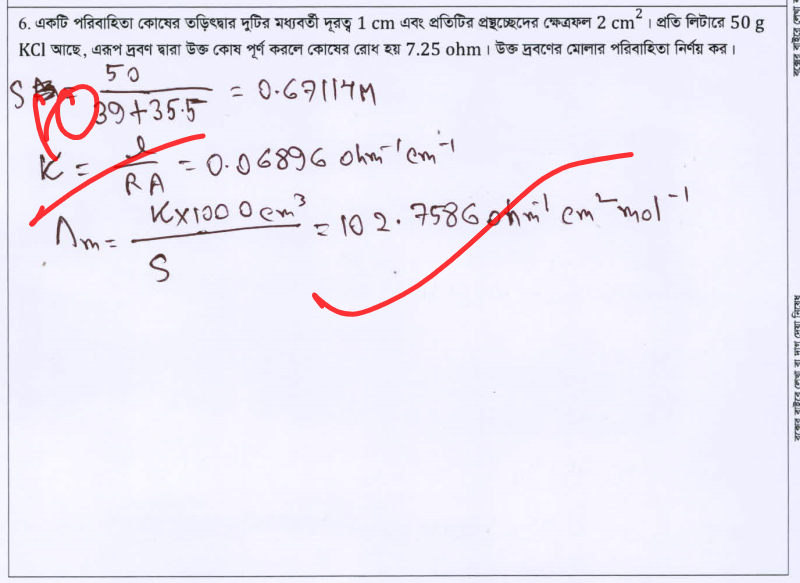 6. একটি পরিবাহিতা কোষের তড়িৎদ্বার দুটির মধ্যবর্তী দূরত্ব 1 cm এবং প্রতিটির প্রস্থচ্ছেদের ক্ষেত্রফল 2 cm²। প্রতি লিটারে 50 g
KCl আছে, এরূপ দ্রবণ দ্বারা উক্ত কোষ পূর্ণ করলে কোষের রোধ হয় 7.25 ohm। উক্ত দ্রবণের মোলার পরিবাহিতা নির্ণয় কর।
S = 50 / (39+35.5) = 0.67114M
K = l / RA = 0.06896 ohm⁻¹ cm⁻¹
Λm = K×1000 cm³ / S = 102.7586 ohm⁻¹ cm² mol⁻¹